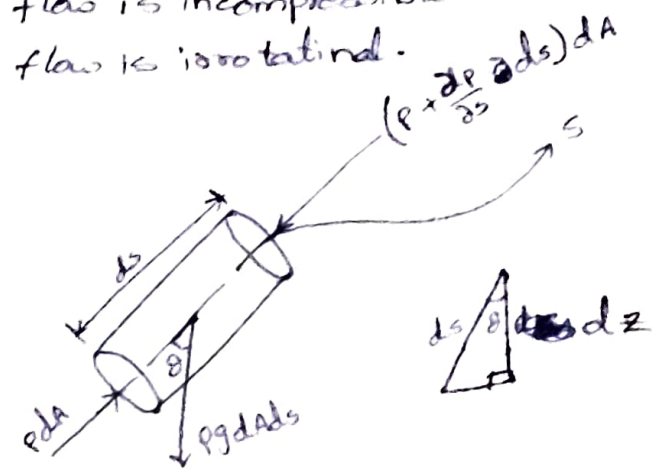 flow is incompressible
flow is irrotatinal.
(p + ∂p/∂s ds) dA
S
ds
θ
pdA
ρgdAds
ds
θ
dz